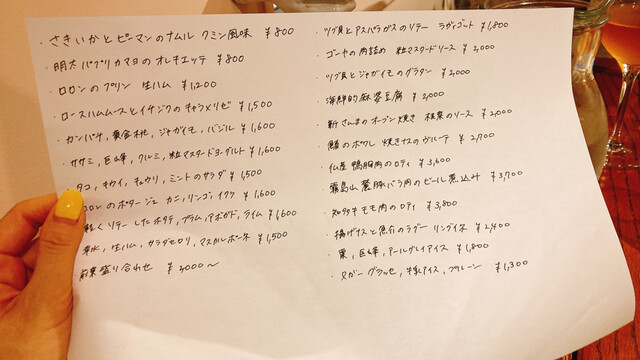 ・さきいかとピーマンのナムル クミン風味 ¥800
・明太パプリカマヨのオレキエッテ ¥800
・ロロンのプリン 生ハム ¥1,200
・ロースハムムースとイチジクのキャラメリゼ ¥1,500
・カンパチ,黄金桃,ジャガイモ,バジル ¥1,600
・ササミ,巨峰,クルミ,粒マスタードヨーグルト ¥1,600
・タコ,キウイ,キュウリ,ミントのサラダ ¥1,500
ロロンのポタージュ カニ,リンゴ,イクラ ¥1,600
軽くソテーしたホタテ,プラム,アボガド,ライム ¥1,600
,生ハム,サラダセロリ,マスカルポーネ ¥1,500
・前菜盛り合わせ ¥2000〜
・ツブ貝とアスパラガスのソテー ラヴィゴット ¥1,800
・ゴーヤの肉詰め 粒マスタードソース ¥2,000
・ツブ貝とジャガイモのグラタン ¥2,000
・海鮮的麻婆豆腐 ¥2,000
・新さんまのオーブン焼き 根菜のソース ¥2,000
・鱧のポワレ 焼きナスのヴルーテ ¥2,700
・仏産鴨胸肉のロティ ¥3,600
・霧島山麓豚バラ肉のビール煮込み ¥3,200
・知多牛モモ肉のロティ ¥3,800
・揚げナスと魚介のラグー リングイネ ¥2,400
・栗,巨峰,アールグレイアイス ¥1,800
・ヌガーグラッセ,アイス,プルーン ¥1,300